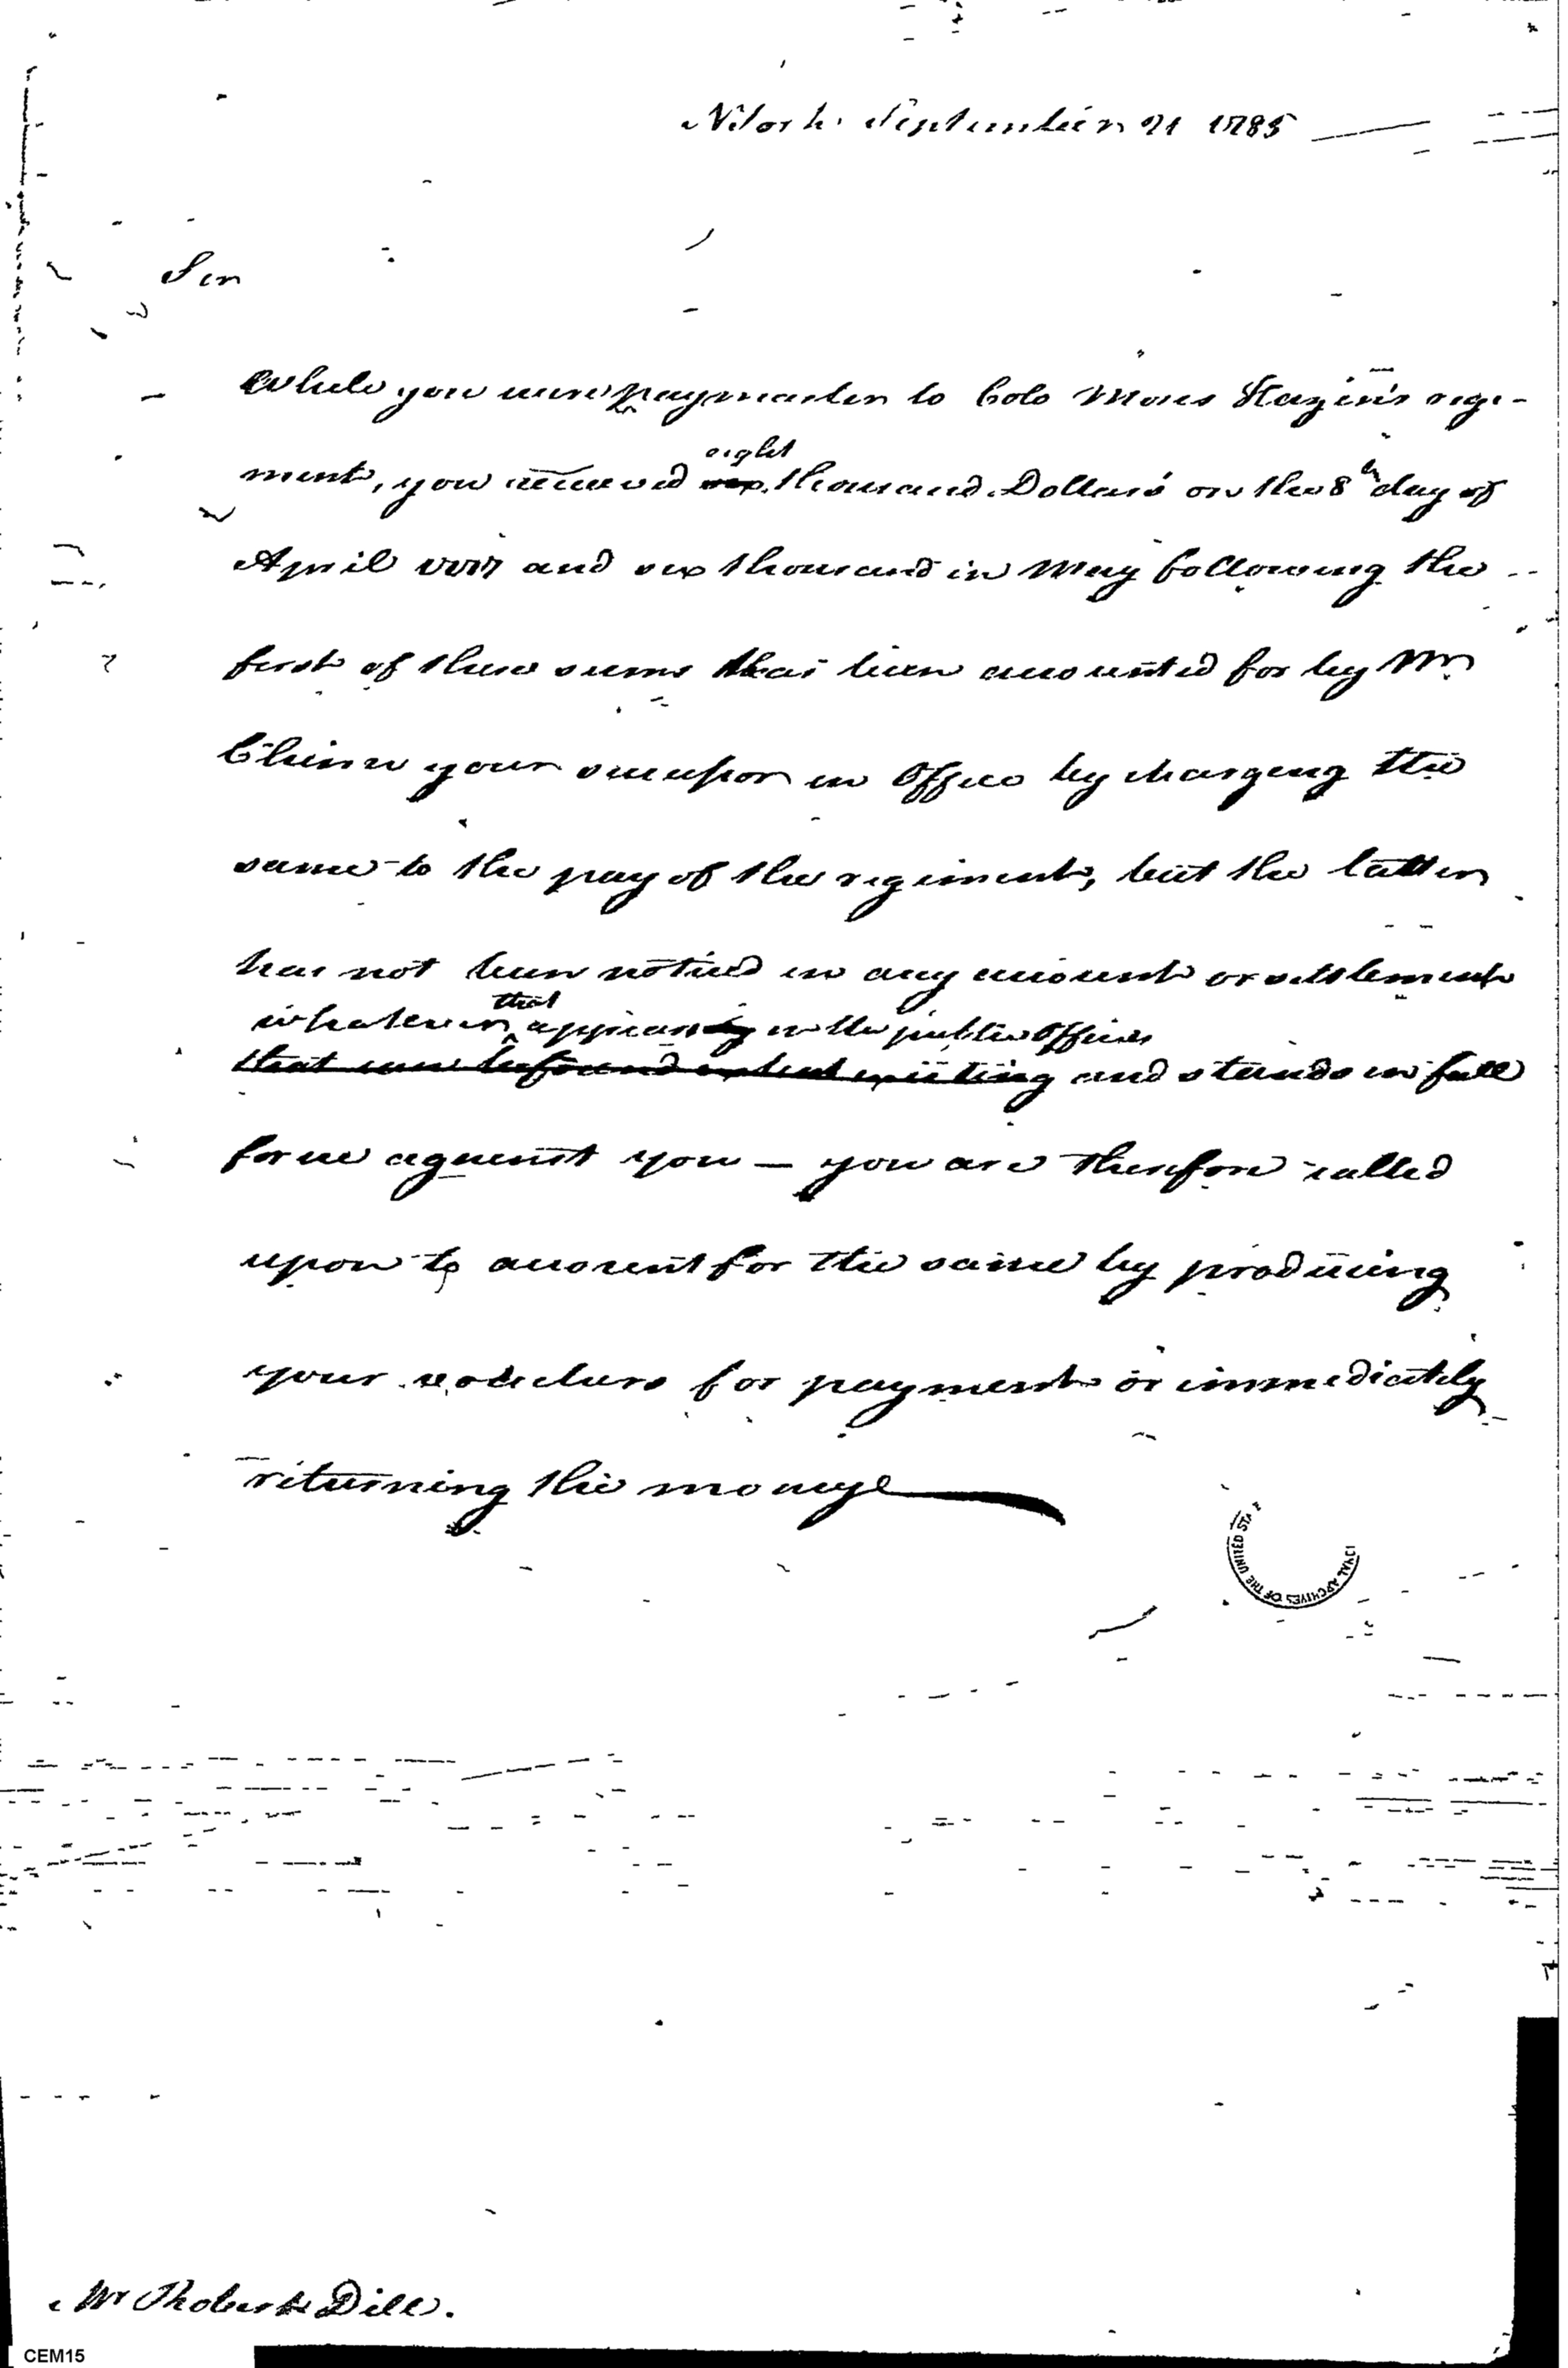 NYork September 21 1785
Sir
While you were paymaster to Colo Moses Hazen's regi-
eight
ment, you received six thousand Dollars on the 8th day of
April 1777 and six thousand in May following the
first of these sums has been accounted for by Mr
your successor in Office by charging the
same to the pay of the regiment, but the latter
has not been noticed in any account or settlement
that
whatever appearing in the public Offices
that can be found extant existing and stands in full
force against you — you are therefore called
upon to account for the same by producing
your vouchers for payment or immediately
returning the money
NATIONAL ARCHIVES OF THE UNITED STA
Mr Robert Dill.
CEM15